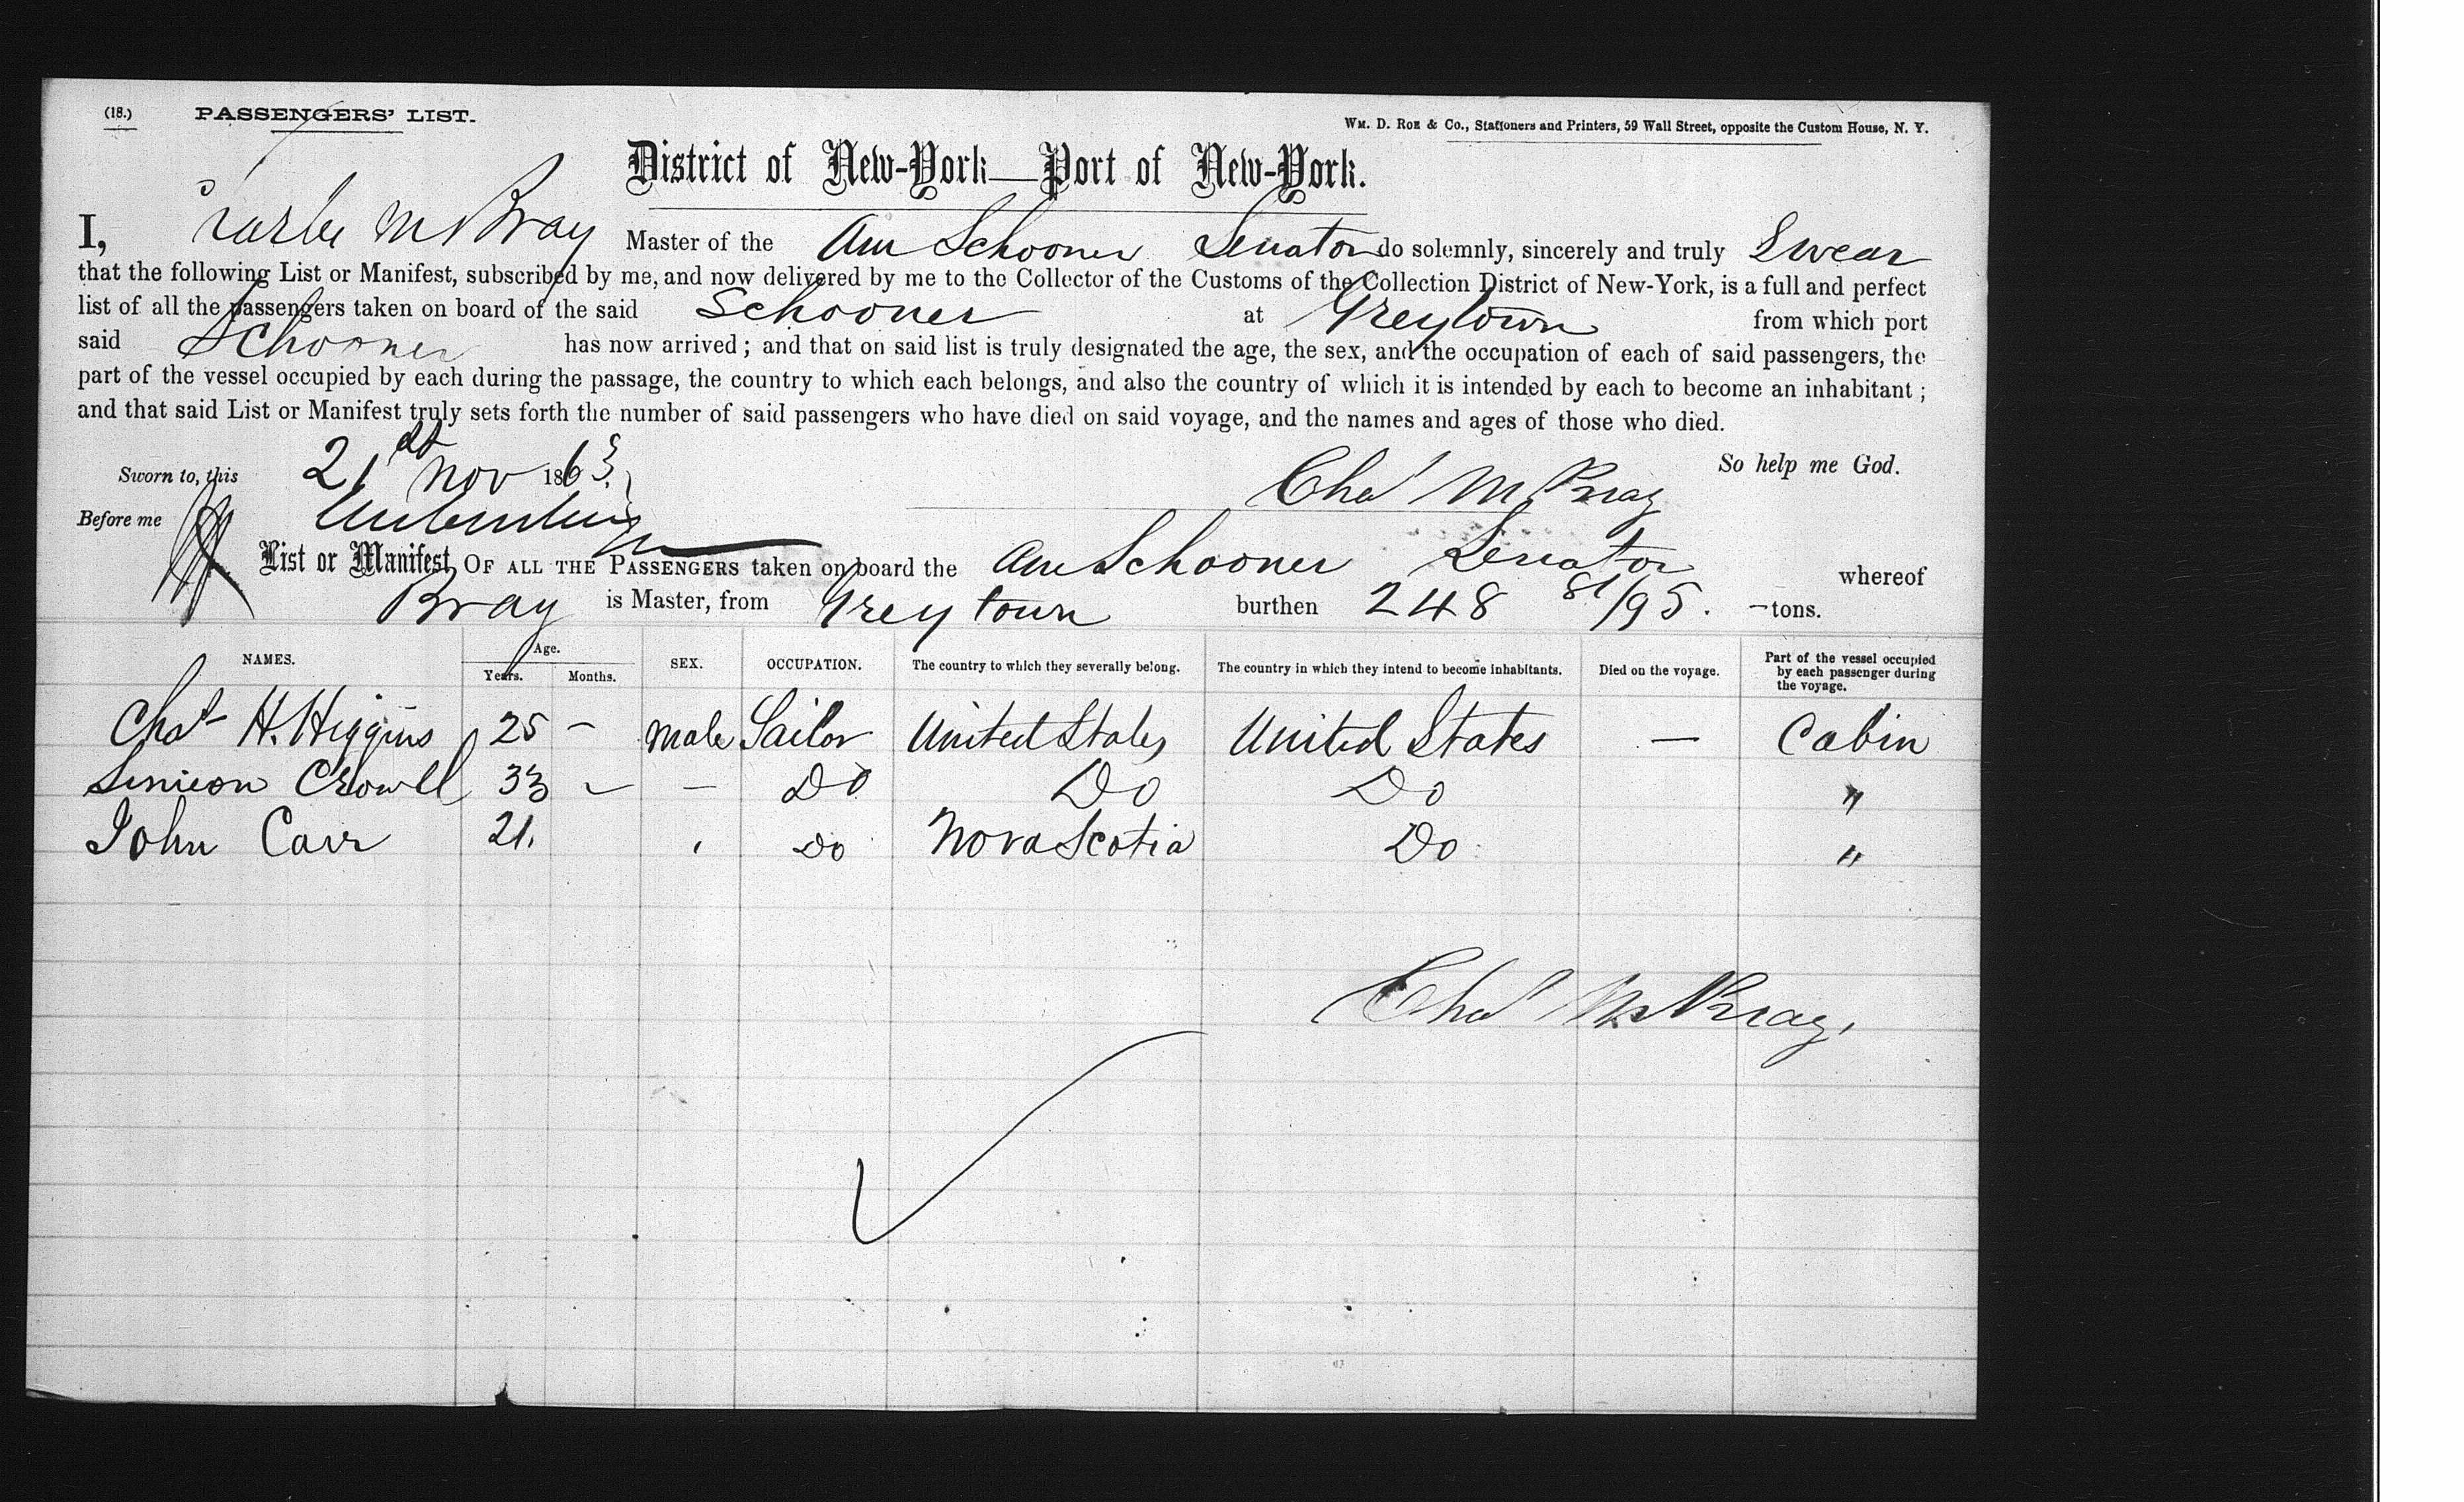 (18.) PASSENGERS' LIST.
WM. D. ROE & CO., Stationers and Printers, 59 Wall Street, opposite the Custom House, N. Y.
District of New-York—Port of New-York.
I, Charles M Bray Master of the Am Schooner Senator do solemnly, sincerely and truly Swear
that the following List or Manifest, subscribed by me, and now delivered by me to the Collector of the Customs of the Collection District of New-York, is a full and perfect
list of all the passengers taken on board of the said Schooner at Greytown from which port
said Schooner has now arrived; and that on said list is truly designated the age, the sex, and the occupation of each of said passengers, the
part of the vessel occupied by each during the passage, the country to which each belongs, and also the country of which it is intended by each to become an inhabitant;
and that said List or Manifest truly sets forth the number of said passengers who have died on said voyage, and the names and ages of those who died.
Sworn to, this 21st Nov 1863. So help me God.
Chas M Bray
Before me
List or Manifest OF ALL THE PASSENGERS taken on board the Am Schooner Senator whereof
Bray is Master, from Greytown burthen 248 81/95. tons.
NAMES. Age. Years. Months. SEX. OCCUPATION. The country to which they severally belong. The country in which they intend to become inhabitants. Died on the voyage. Part of the vessel occupied by each passenger during the voyage.
Chas H. Higgins 25 – Male Sailor United States United States — Cabin
Simeon Crowell 33 – – Do Do Do "
John Carr 21. Do Nova Scotia Do "
Chas M Bray,